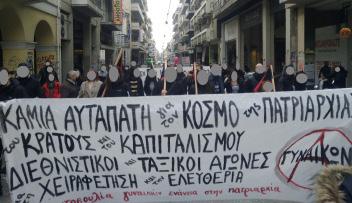 ΚΑΜΙΑ ΑΥΤΑΠΑΤΗ για τον ΚΟΣΜΟ της ΠΑΤΡΙΑΡΧΙΑΣ
του ΚΡΑΤΟΥΣ και του ΚΑΠΙΤΑΛΙΣΜΟΥ
ΔΙΕΘΝΙΣΤΙΚΟΙ και ΤΑΞΙΚΟΙ ΑΓΩΝΕΣ
ΧΕΙΡΑΦΕΤΗΣΗ και ΕΛΕΥΘΕΡΙΑ
γυναικών ενάντια στην πατριαρχία